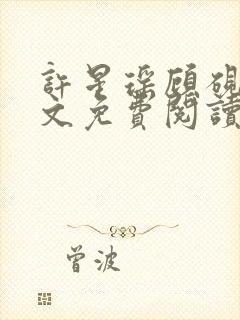 許星琛顧硯
文免費閱讀
曾波